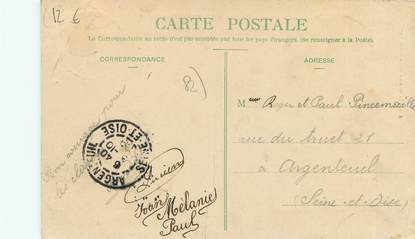 12 6
CARTE POSTALE
La Correspondance au recto n'est pas acceptée par tous les pays étrangers. (Se renseigner à la Poste)
CORRESPONDANCE
ADRESSE
82
M Roger et Paul Pincemaille
rue du 21
à Argenteuil
(Seine-et-Oise)
Bon souvenir pour
les
ARGENTEUIL
SEINE-ET-OISE
Lucien
Jean
Mélanie
Paul